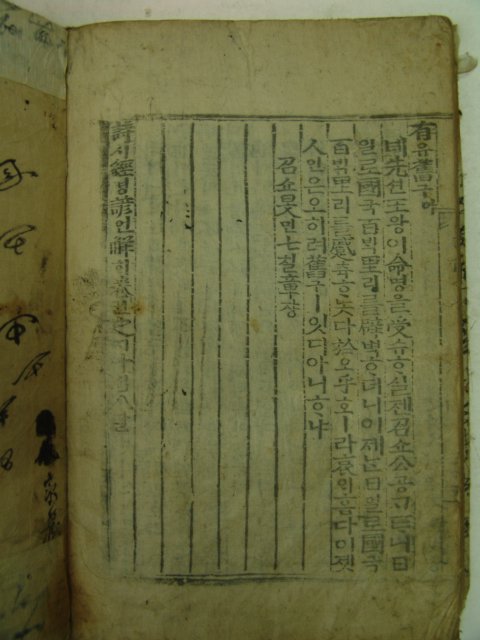 有유舊구아
녜先션王왕이命명을受슈ᄒᆞ실젠召쇼公공ᄀᆞᄐᆞ니日
일로國국百ᄇᆡᆨ里리를辟벽ᄒᆞ더니이제ᄂᆞᆫ日일로國국
百ᄇᆡᆨ里리를蹙츅ᄒᆞ놋다於오乎호ㅣ라哀ᄋᆡ홉다이젯
人인은오히려舊구ㅣ잇디아니ᄒᆞ냐
召쇼旻민七칠章쟝
詩시經경諺언解ᄒᆡ卷권之지十십八팔